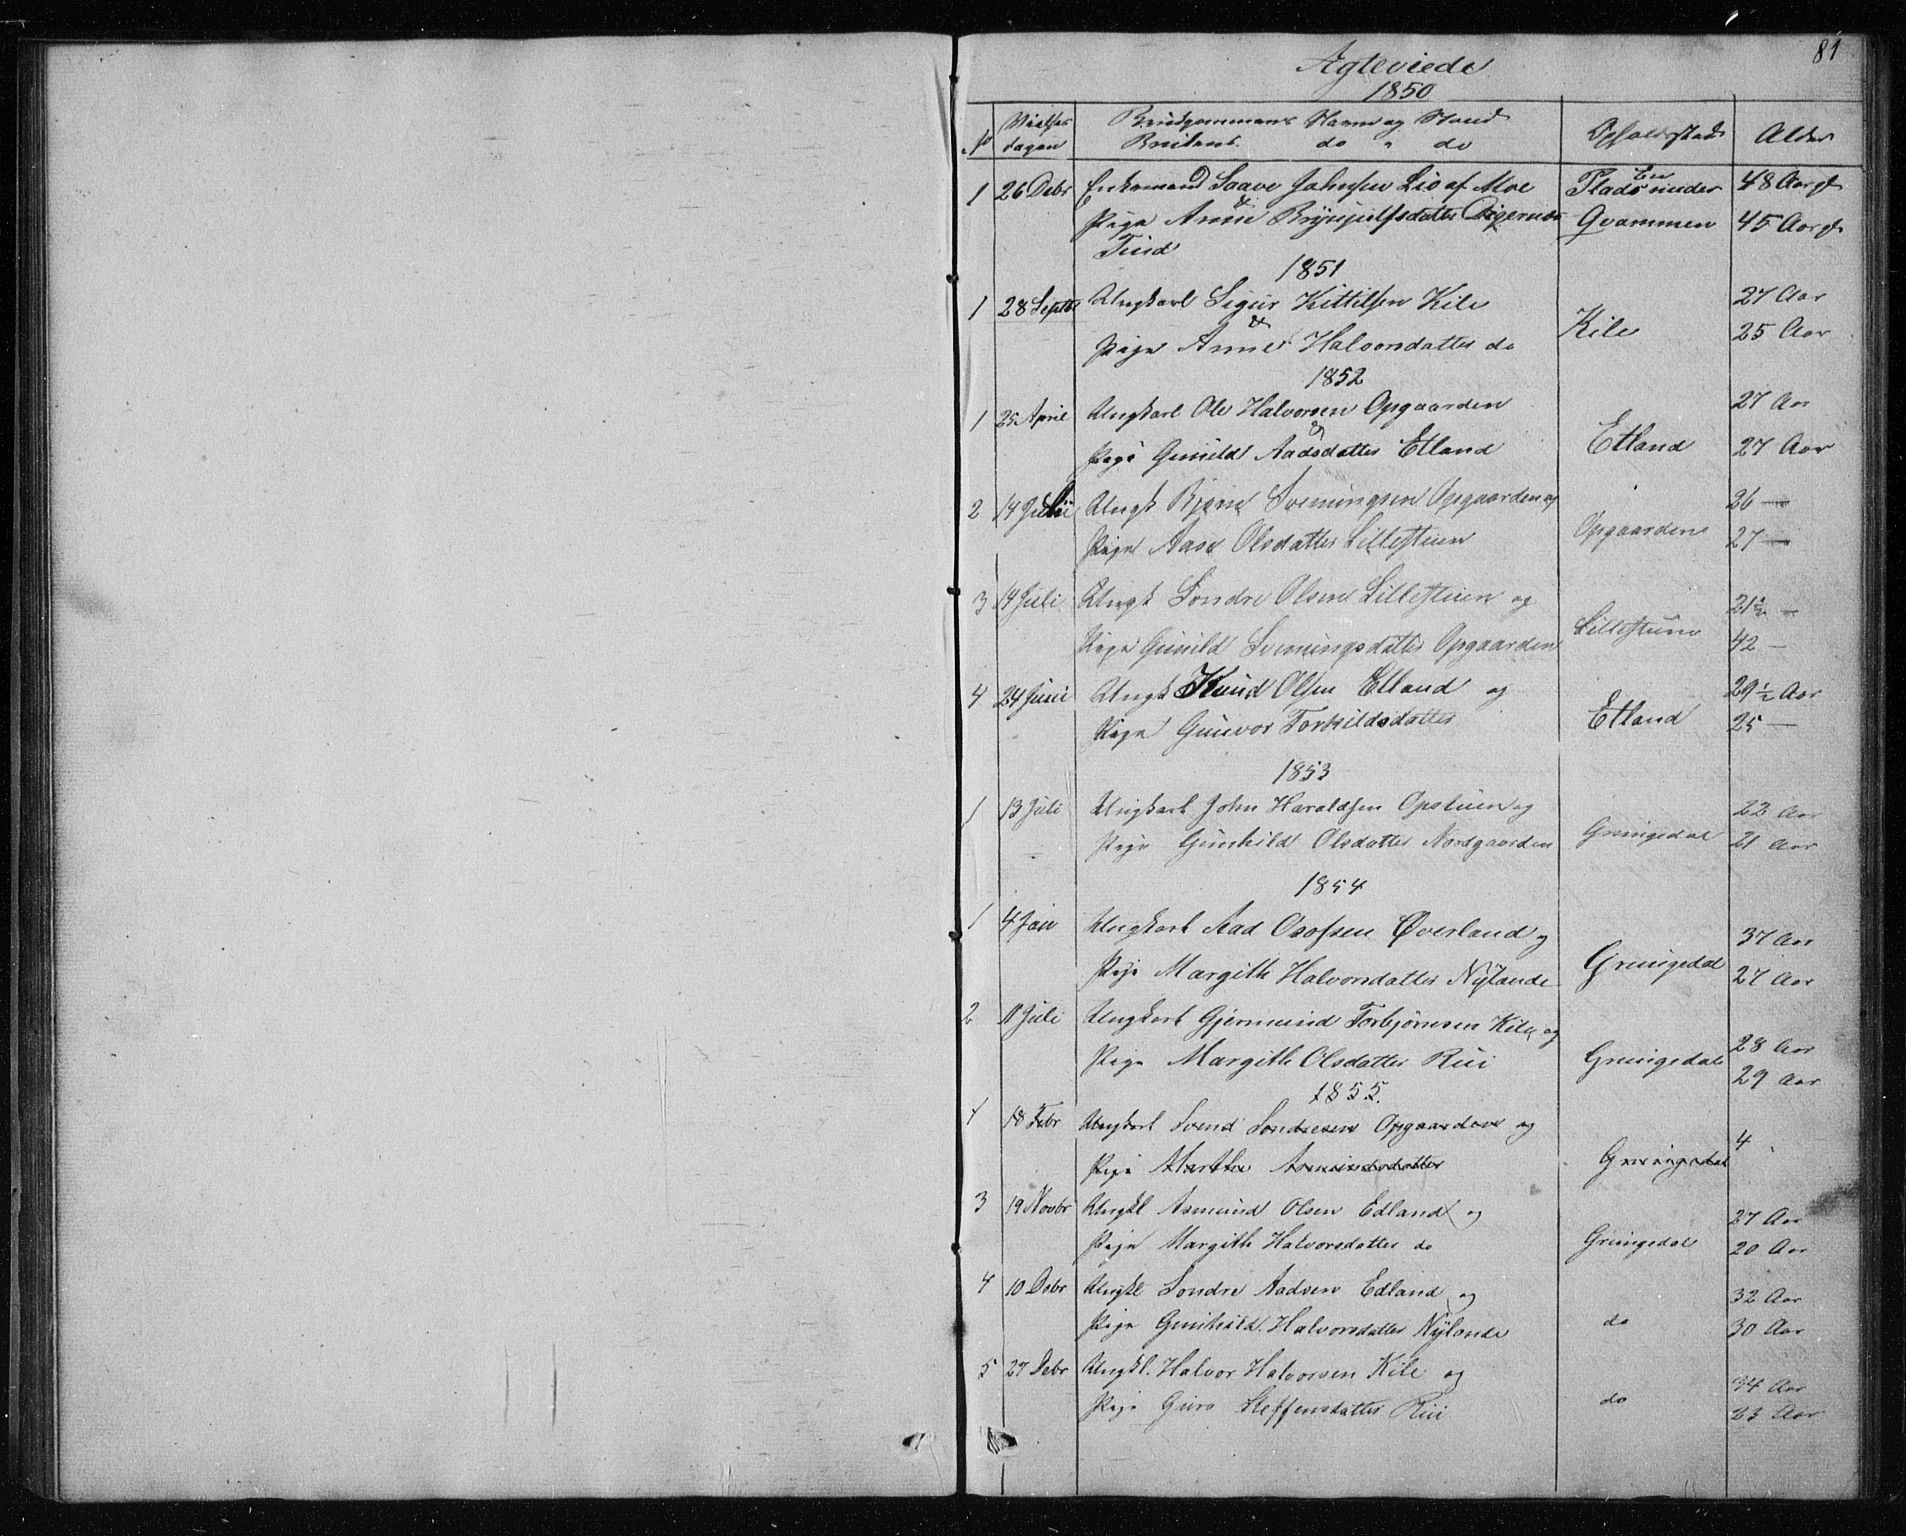 81
Ægteviede
1850
No Vielses dagen Brudgommens Navn og Stand Opholdssted Alder
Brudens do " do
1 26 Debr Enkemand Saave Johnsen Lio af Moe Pladsrinder 48 Aar gl
& Pige Anne Brynjulfsdatter Qvammen 45 Aar gl
Tind
1851
1 28 Septbr Ungkarl Sigur Kittilsen Kile 27 Aar
& Kile
Pige Anne Halvorsdatter do 25 Aar
1852
1 25 April Ungkarl Ole Halvorsen Opgaarden 27 Aar
& Pige Gunild Aadsdatter Etland Etland 27 Aar
2 14 Juli Ungk Bjørn Svenningsen Opgaarden og 26 —
Pige Aase Olsdatter Lillestuen Opgaarden 27 —
3 14 Juli Ungk Sondre Olsen Lillestuen og 21½ —
Pige Gunild Svenningsdatter Opgaarden Lillestuen 42 —
4 24 Juni Ungk Knud Olsen Etland og 29½ Aar
Pige Gunvor Torkildsdatter Etland 25 —
1853
1 13 Juli Ungkarl John Haraldsen Opstuen og 22 Aar
Pige Gunhild Olsdatter Nordgaarden Grungedal 21 Aar
1854
1 4 Jan Ungkarl Aad Olofsen Øverland og 37 Aar
Pige Margith Halvorsdatter Nylande Grungedal 27 Aar
2 11 Juli Ungkarl Gjermund Torbjørnsen Kile og 28 Aar
Pige Margith Olsdatter Rui Grungedal 29 Aar
1855.
1 18 Febr Ungkarl Svend Sondresen Opgaarden og 4
Pige Marthe Asmundsdatter Grungedal
3 19 Novbr Ungkl Asmund Olsen Edland og 27 Aar
Pige Margith Halvorsdatter do Grungedal 20 Aar
4 10 Debr Ungkl Sondre Aadsen Edland og 32 Aar
Pige Gunhild Halvorsdatter Nylande do 30 Aar
5 27 Debr Ungkl. Halvor Halvorsen Kile og 34 Aar
Pige Guro Steffensdatter Rui do 23 Aar